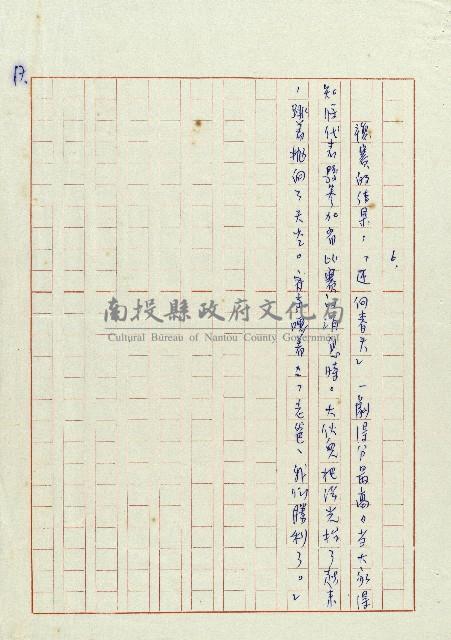 17.
6.
複賽的結果，「迎向春天」一劇得分最高。当大家得
知代表縣參加省比賽的消息時。大伙兒把光抬了起來
，跳著拋向了天空。嚷着：「老爸、我們勝利了。」
南投縣政府文化局
Cultural Bureau of Nantou County Government